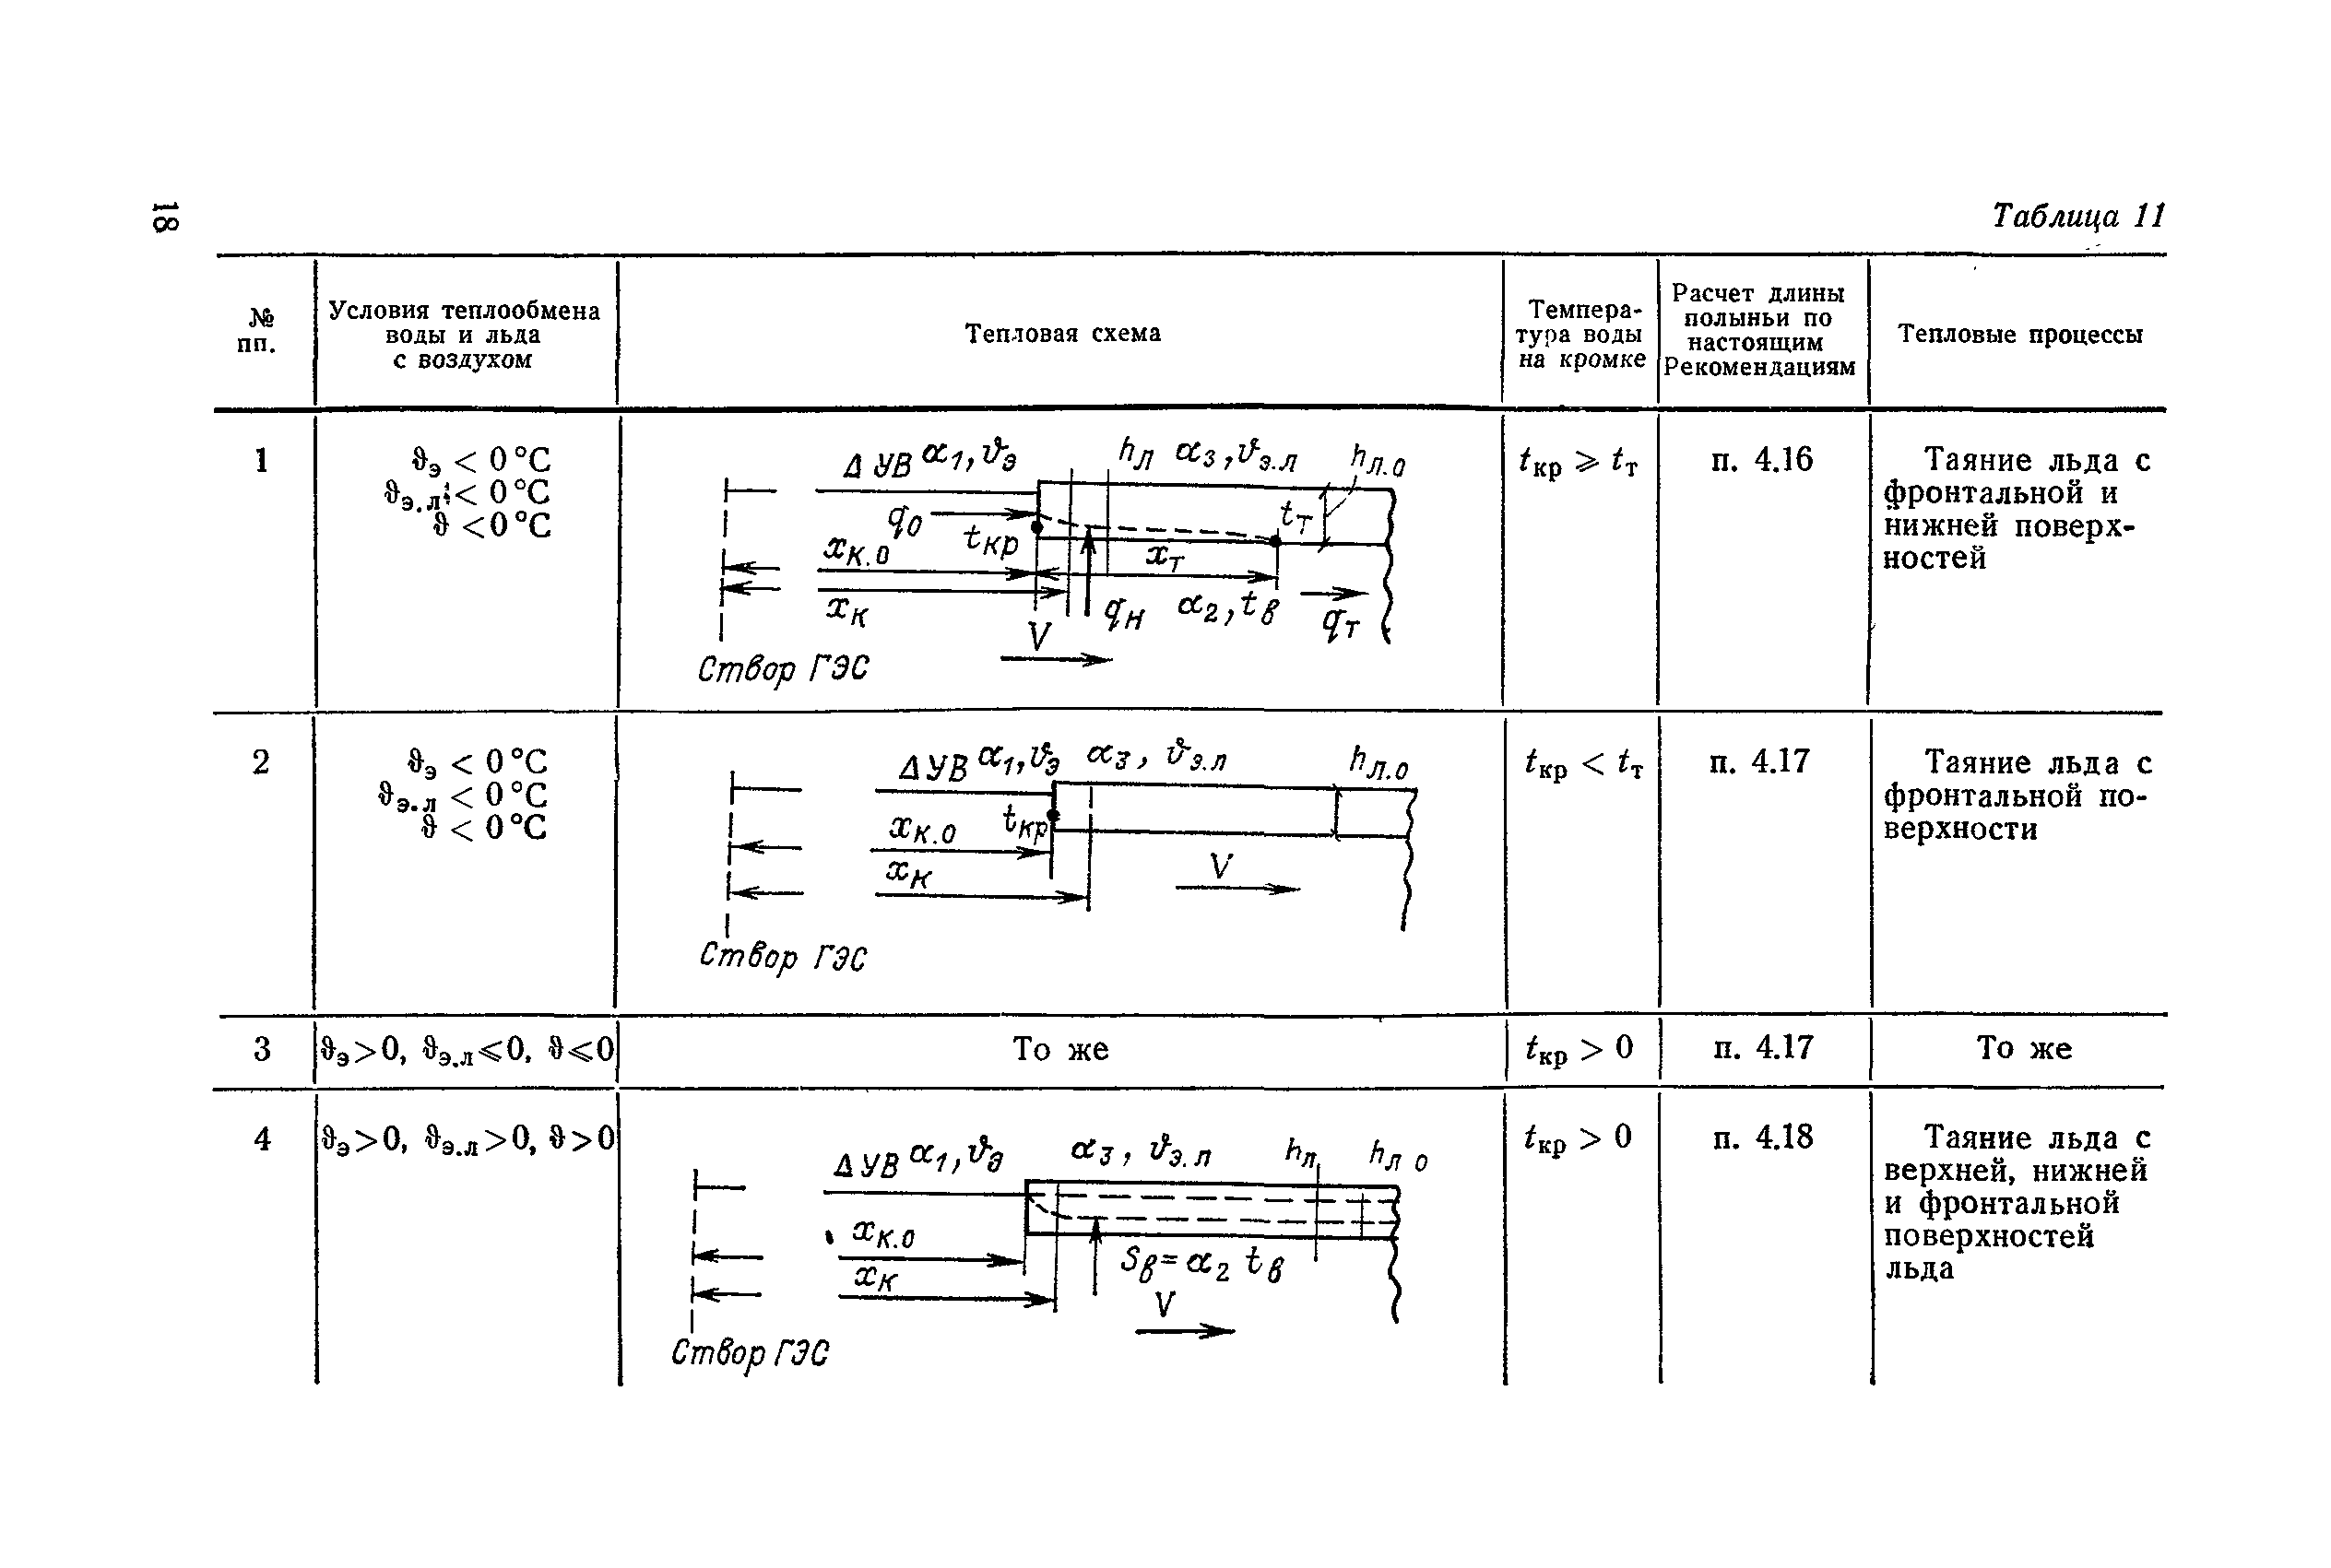 18
Таблица 11
№
пп.
Условия теплообмена
воды и льда
с воздухом
Тепловая схема
Темпера-
тура воды
на кромке
Расчет длины
полыньи по
настоящим
Рекомендациям
Тепловые процессы
1
ϑэ < 0 °С
ϑэ.л < 0 °С
ϑ < 0 °С
Δ УВ α1, ϑэ hл α3, ϑэ.л hл.о
q0 tкр tт
xк.о xт
xк qн α2, tв qт
V
Створ ГЭС
tкр ⩾ tт
п. 4.16
Таяние льда с
фронтальной и
нижней поверх-
ностей
2
ϑэ < 0 °С
ϑэ.л < 0 °С
ϑ < 0 °С
Δ УВ α1, ϑэ α3, ϑэ.л hл.о
xк.о tкр
xк V
Створ ГЭС
tкр < tт
п. 4.17
Таяние льда с
фронтальной по-
верхности
3
ϑэ>0, ϑэ.л⩽0, ϑ⩽0
То же
tкр > 0
п. 4.17
То же
4
ϑэ>0, ϑэ.л>0, ϑ>0
Δ УВ α1, ϑэ α3, ϑэ.л hл hл о
xк.о
xк Sв=α2 tв
V
Створ ГЭС
tкр > 0
п. 4.18
Таяние льда с
верхней, нижней
и фронтальной
поверхностей
льда